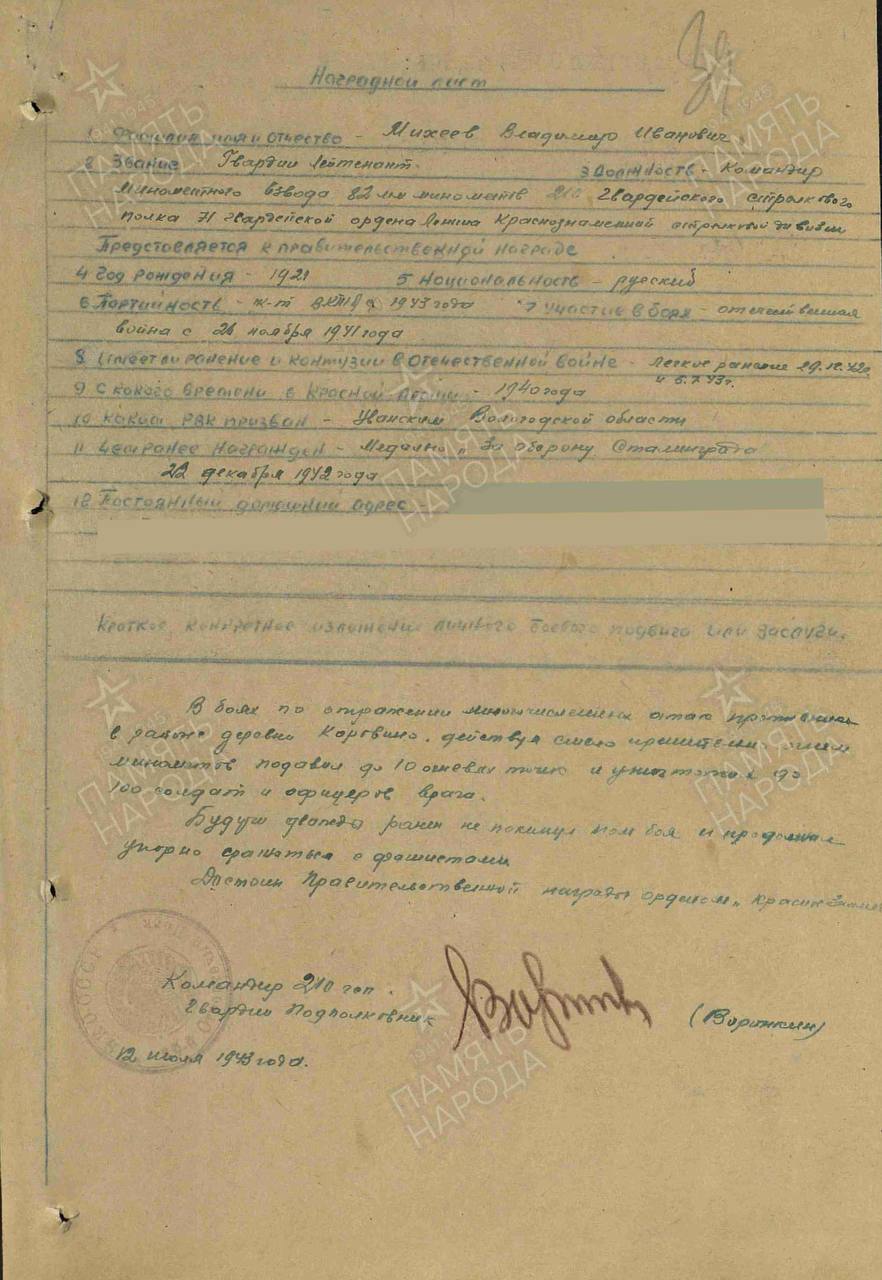 Наградной лист
1 Фамилия имя и отчество - Михеев Владимир Иванович
2 Звание Гвардии Лейтенант. 3 Должность - Командир
Минометного взвода 82 мм минометв 210 Гвардейского стрелкового
полка 71 Гвардейской ордена Ленина Краснознаменной стрелковой дивизии
Предстовляется к правительственной награде
4 Год рождения - 1921 5 Национальность - русский
6 Партийность - к-т ВКП(б) с 1943 года 7 Участие в боях - отечественная
война с 26 ноября 1941 года
8 Имеет ли ранение и контузии в отечественной войне - легкое ранение 29.12.42г.
и 5.7.43г.
9 С какого времени в Красной Армии - 1940 года
10 Каким РВК призван - Уванским Вологодской области
11 Чем ранее награжден - Медалью "За оборону Сталинграда
22 декабря 1942 года
12 Постоянный домашний адрес -
Краткое, конкретное изложение личного боевого подвига или заслуги.
В боях по отражении многочисленных атак противника
в районе деревни Коровино. действуя смело и решительно огнем
минометов подавил до 10 огневых точек и уничтожил до
100 солдат и офицеров врага.
Будучи дважды ранен не покинул поля боя и продолжал
упорно сражаться с фашистами
Достоин Правительственной награды орденом "Красное Знамя
Командир 210 гсп.
Гвардии Подполковник
(Воронкин)
12 июля 1943 года.
ПАМЯТЬ
НАРОДА
1941-1945